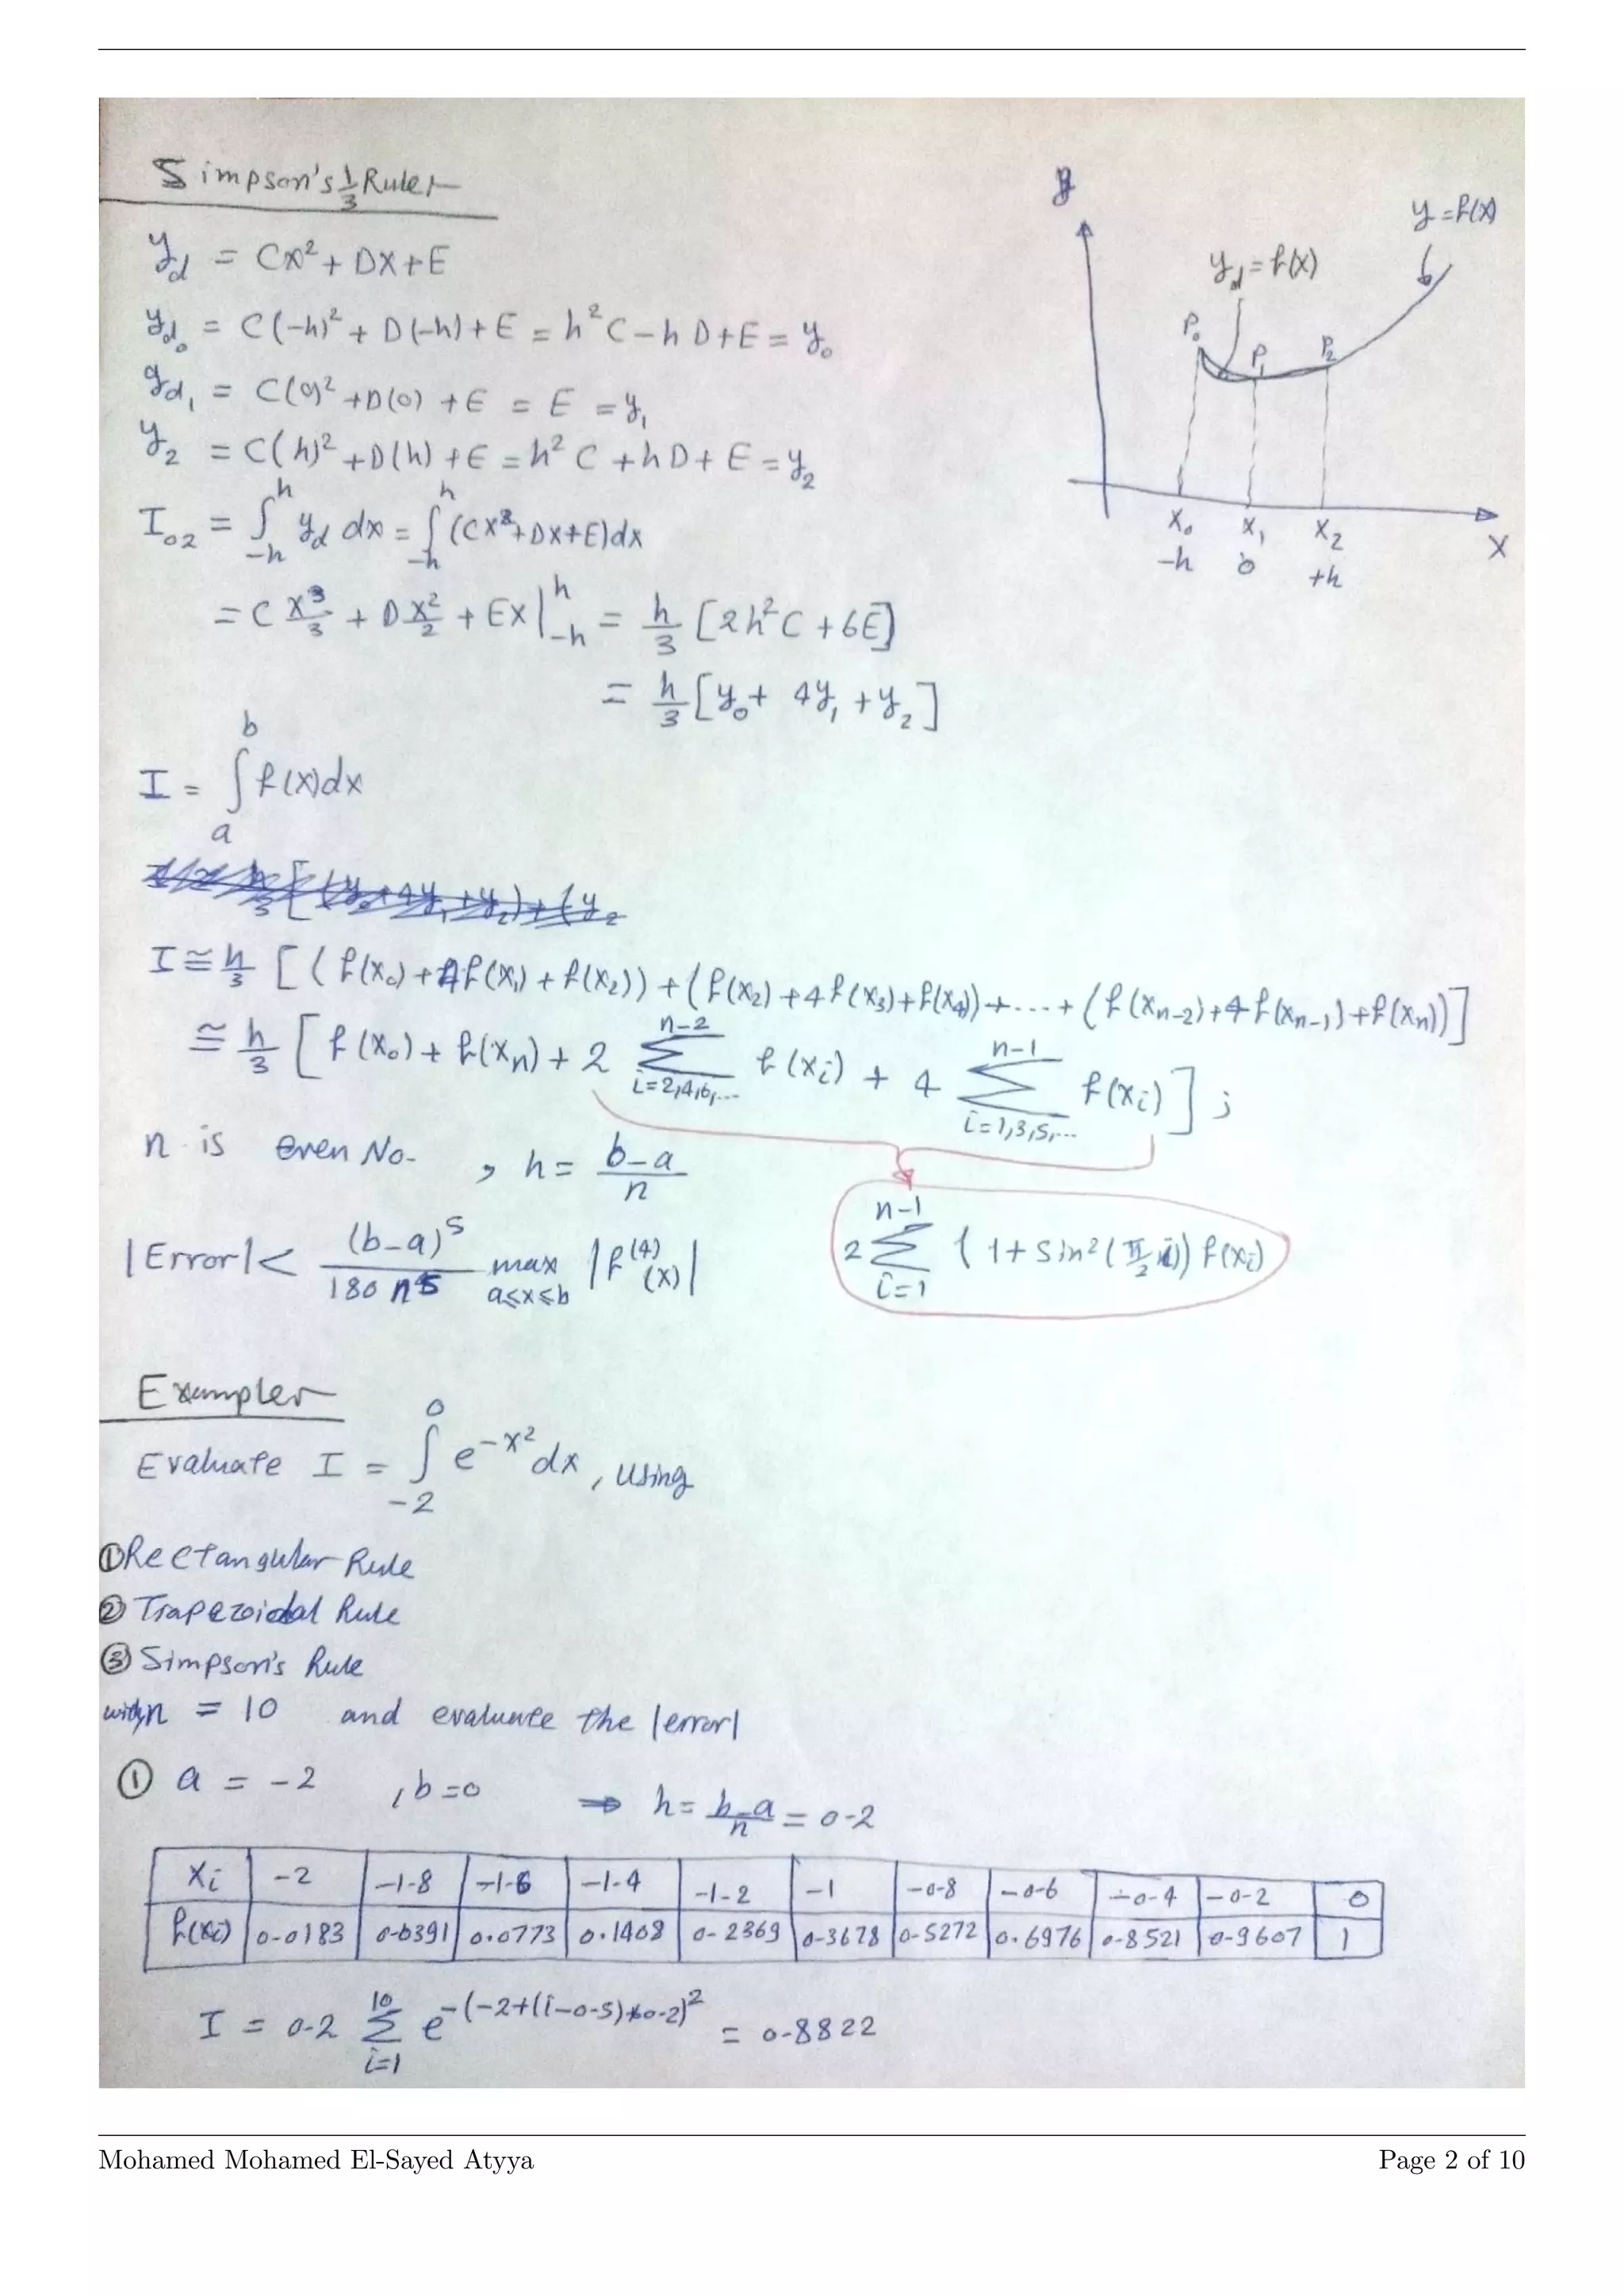 Simpson's 1/3 Rule:-
y_d = Cx² + Dx + E
y_d0 = C(-h)² + D(-h) + E = h²C - hD + E = y_0
y_d1 = C(0)² + D(0) + E = E = y_1
y_2 = C(h)² + D(h) + E = h²C + hD + E = y_2
I_02 = ∫_{-h}^{h} y_d dx = ∫_{-h}^{h} (Cx² + Dx + E)dx
= C x³/3 + D x²/2 + Ex |_{-h}^{h} = h/3 [2h²C + 6E]
= h/3 [y_0 + 4y_1 + y_2]
y
y = f(x)
y_d = f(x)
P_0 P_1 P_2
x_0 x_1 x_2
-h 0 +h
x
I = ∫_a^b f(x)dx
I ≅ h/3 [(f(x_0) + 4f(x_1) + f(x_2)) + (f(x_2) + 4f(x_3) + f(x_4)) + ... + (f(x_{n-2}) + 4f(x_{n-1}) + f(x_n))]
≅ h/3 [f(x_0) + f(x_n) + 2 Σ_{i=2,4,6,...}^{n-2} f(x_i) + 4 Σ_{i=1,3,5,...}^{n-1} f(x_i)] ;
n is even No. , h = (b-a)/n
2 Σ_{i=1}^{n-1} (1 + sin²(π/2 i)) f(x_i)
|Error| < (b-a)⁵/(180 n⁵) max_{a≤x≤b} |f⁽⁴⁾(x)|
Example:-
Evaluate I = ∫_{-2}^{0} e^{-x²} dx , using
① Rectangular Rule
② Trapezoidal Rule
③ Simpson's Rule
with n = 10 and evaluate the |error|
① a = -2 , b = 0 ⇒ h = (b-a)/n = 0.2
x_i | -2 | -1.8 | -1.6 | -1.4 | -1.2 | -1 | -0.8 | -0.6 | -0.4 | -0.2 | 0
f(x_i) | 0.0183 | 0.0391 | 0.0773 | 0.1408 | 0.2369 | 0.3678 | 0.5272 | 0.6976 | 0.8521 | 0.9607 | 1
I = 0.2 Σ_{i=1}^{10} e^{-(-2+(i-0.5)*0.2)²} = 0.8822
Mohamed Mohamed El-Sayed Atyya
Page 2 of 10